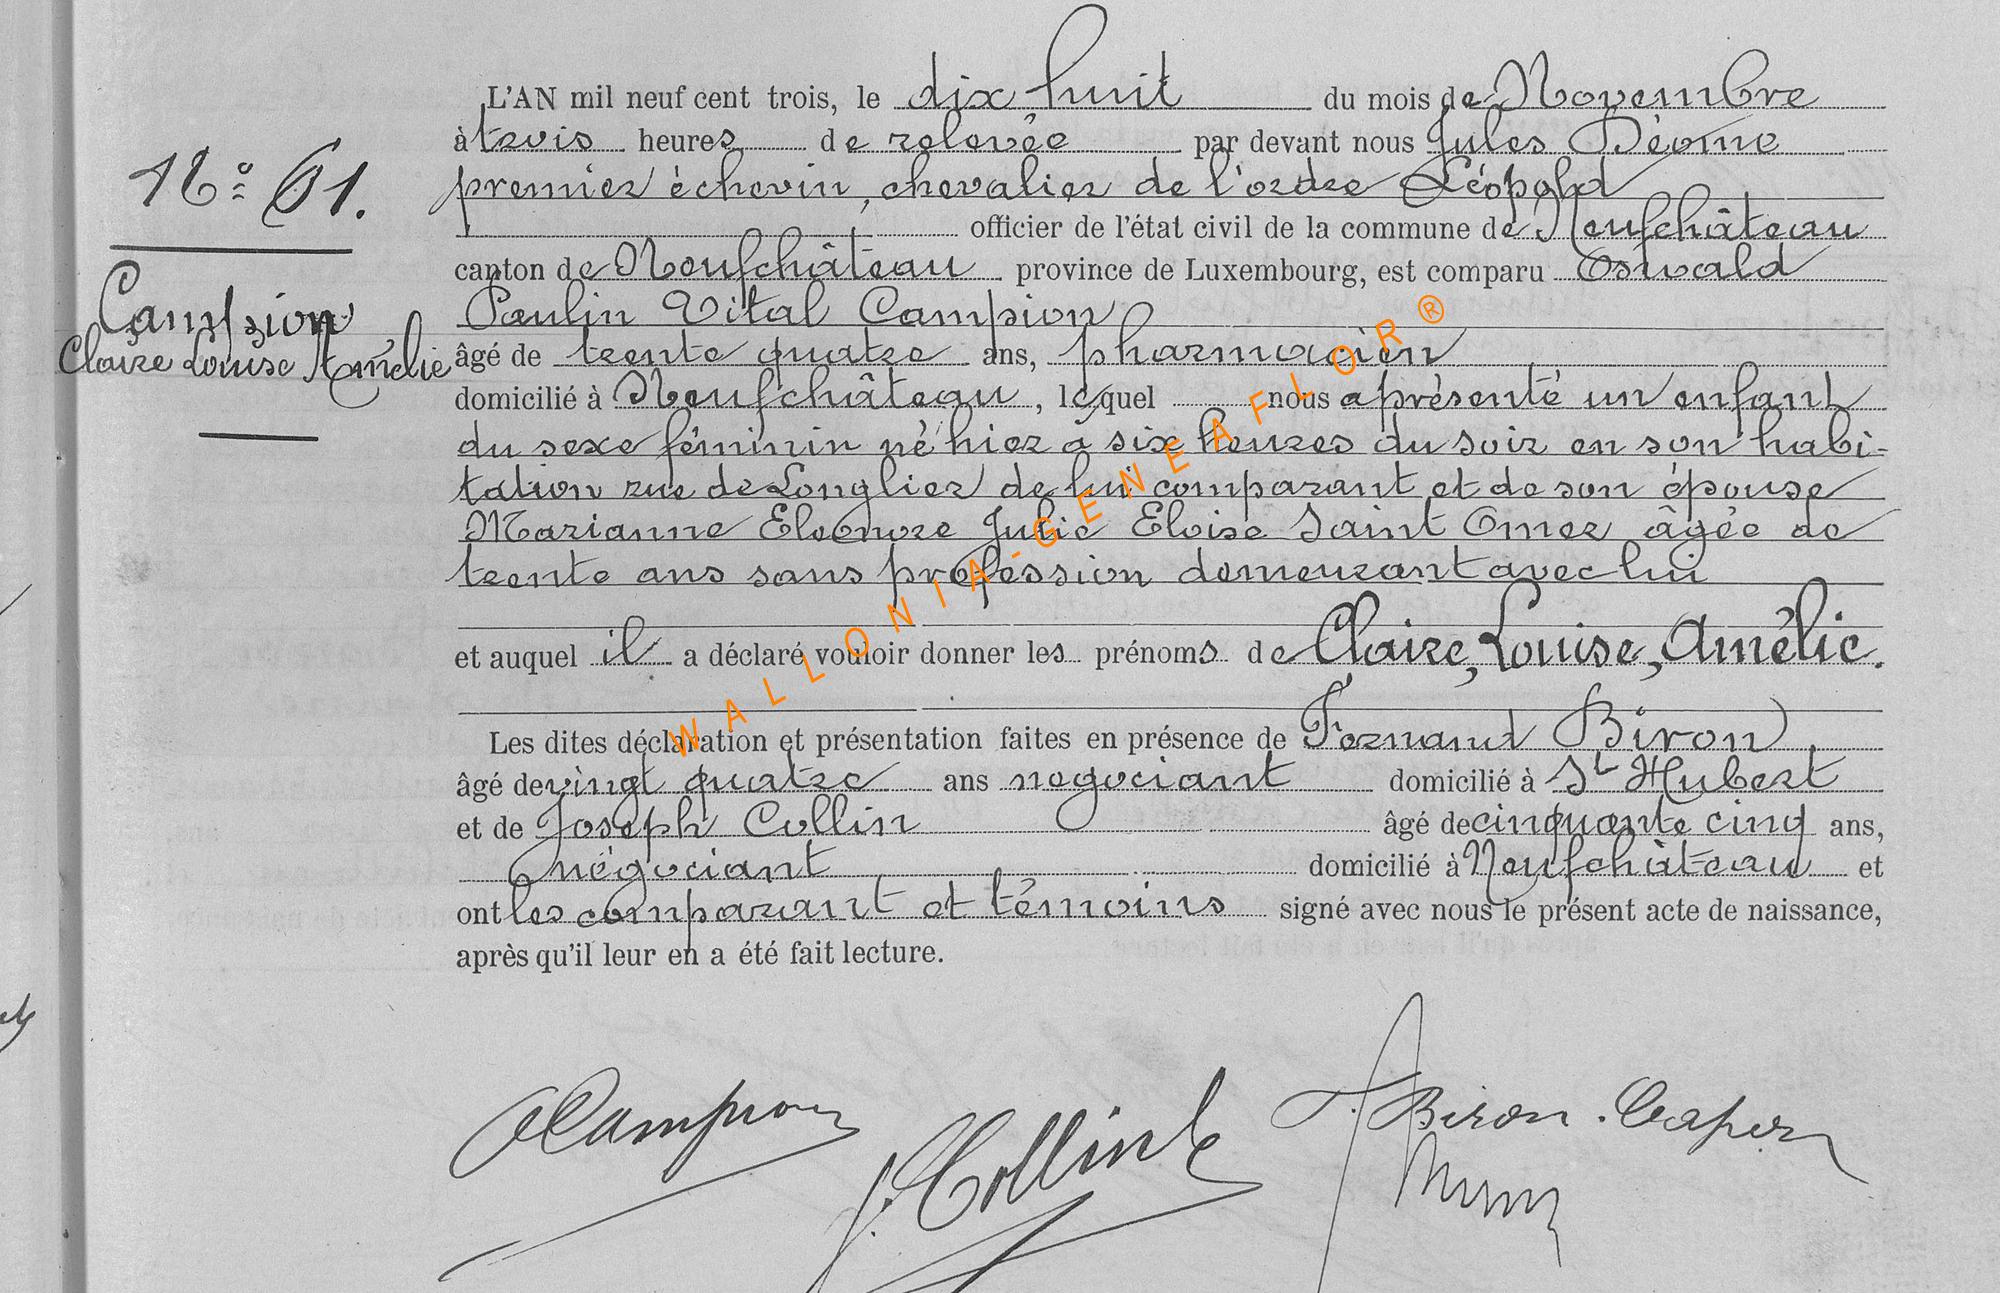 N° 61.
Campion
Claire Louise Amélie
L'AN mil neuf cent trois, le dix huit du mois de Novembre
à trois heures de relevée par devant nous Jules
premier échevin, chevalier de l'ordre Léopold
officier de l'état civil de la commune de Neufchâteau
canton de Neufchâteau province de Luxembourg, est comparu Oswald
Paulin Vital Campion
âgé de trente quatre ans, pharmacien
domicilié à Neufchâteau, lequel nous a présenté un enfant
du sexe féminin né hier à six heures du soir en son habi-
tation rue de Longlier de lui comparant et de son épouse
Marianne Eleonore Julie Eloise Saint Omer âgée de
trente ans sans profession demeurant avec lui
et auquel il a déclaré vouloir donner les prénoms de Claire, Louise, Amélie.
Les dites déclaration et présentation faites en présence de Fernand Biron
âgé de vingt quatre ans negociant domicilié à St Hubert
et de Joseph Collin âgé de cinquante cinq ans,
négociant domicilié à Neufchâteau et
ont les comparant et témoins signé avec nous le présent acte de naissance,
après qu'il leur en a été fait lecture.
OCampion
J. Collin
F. Biron
WALLONIA-GENEAFLOR®